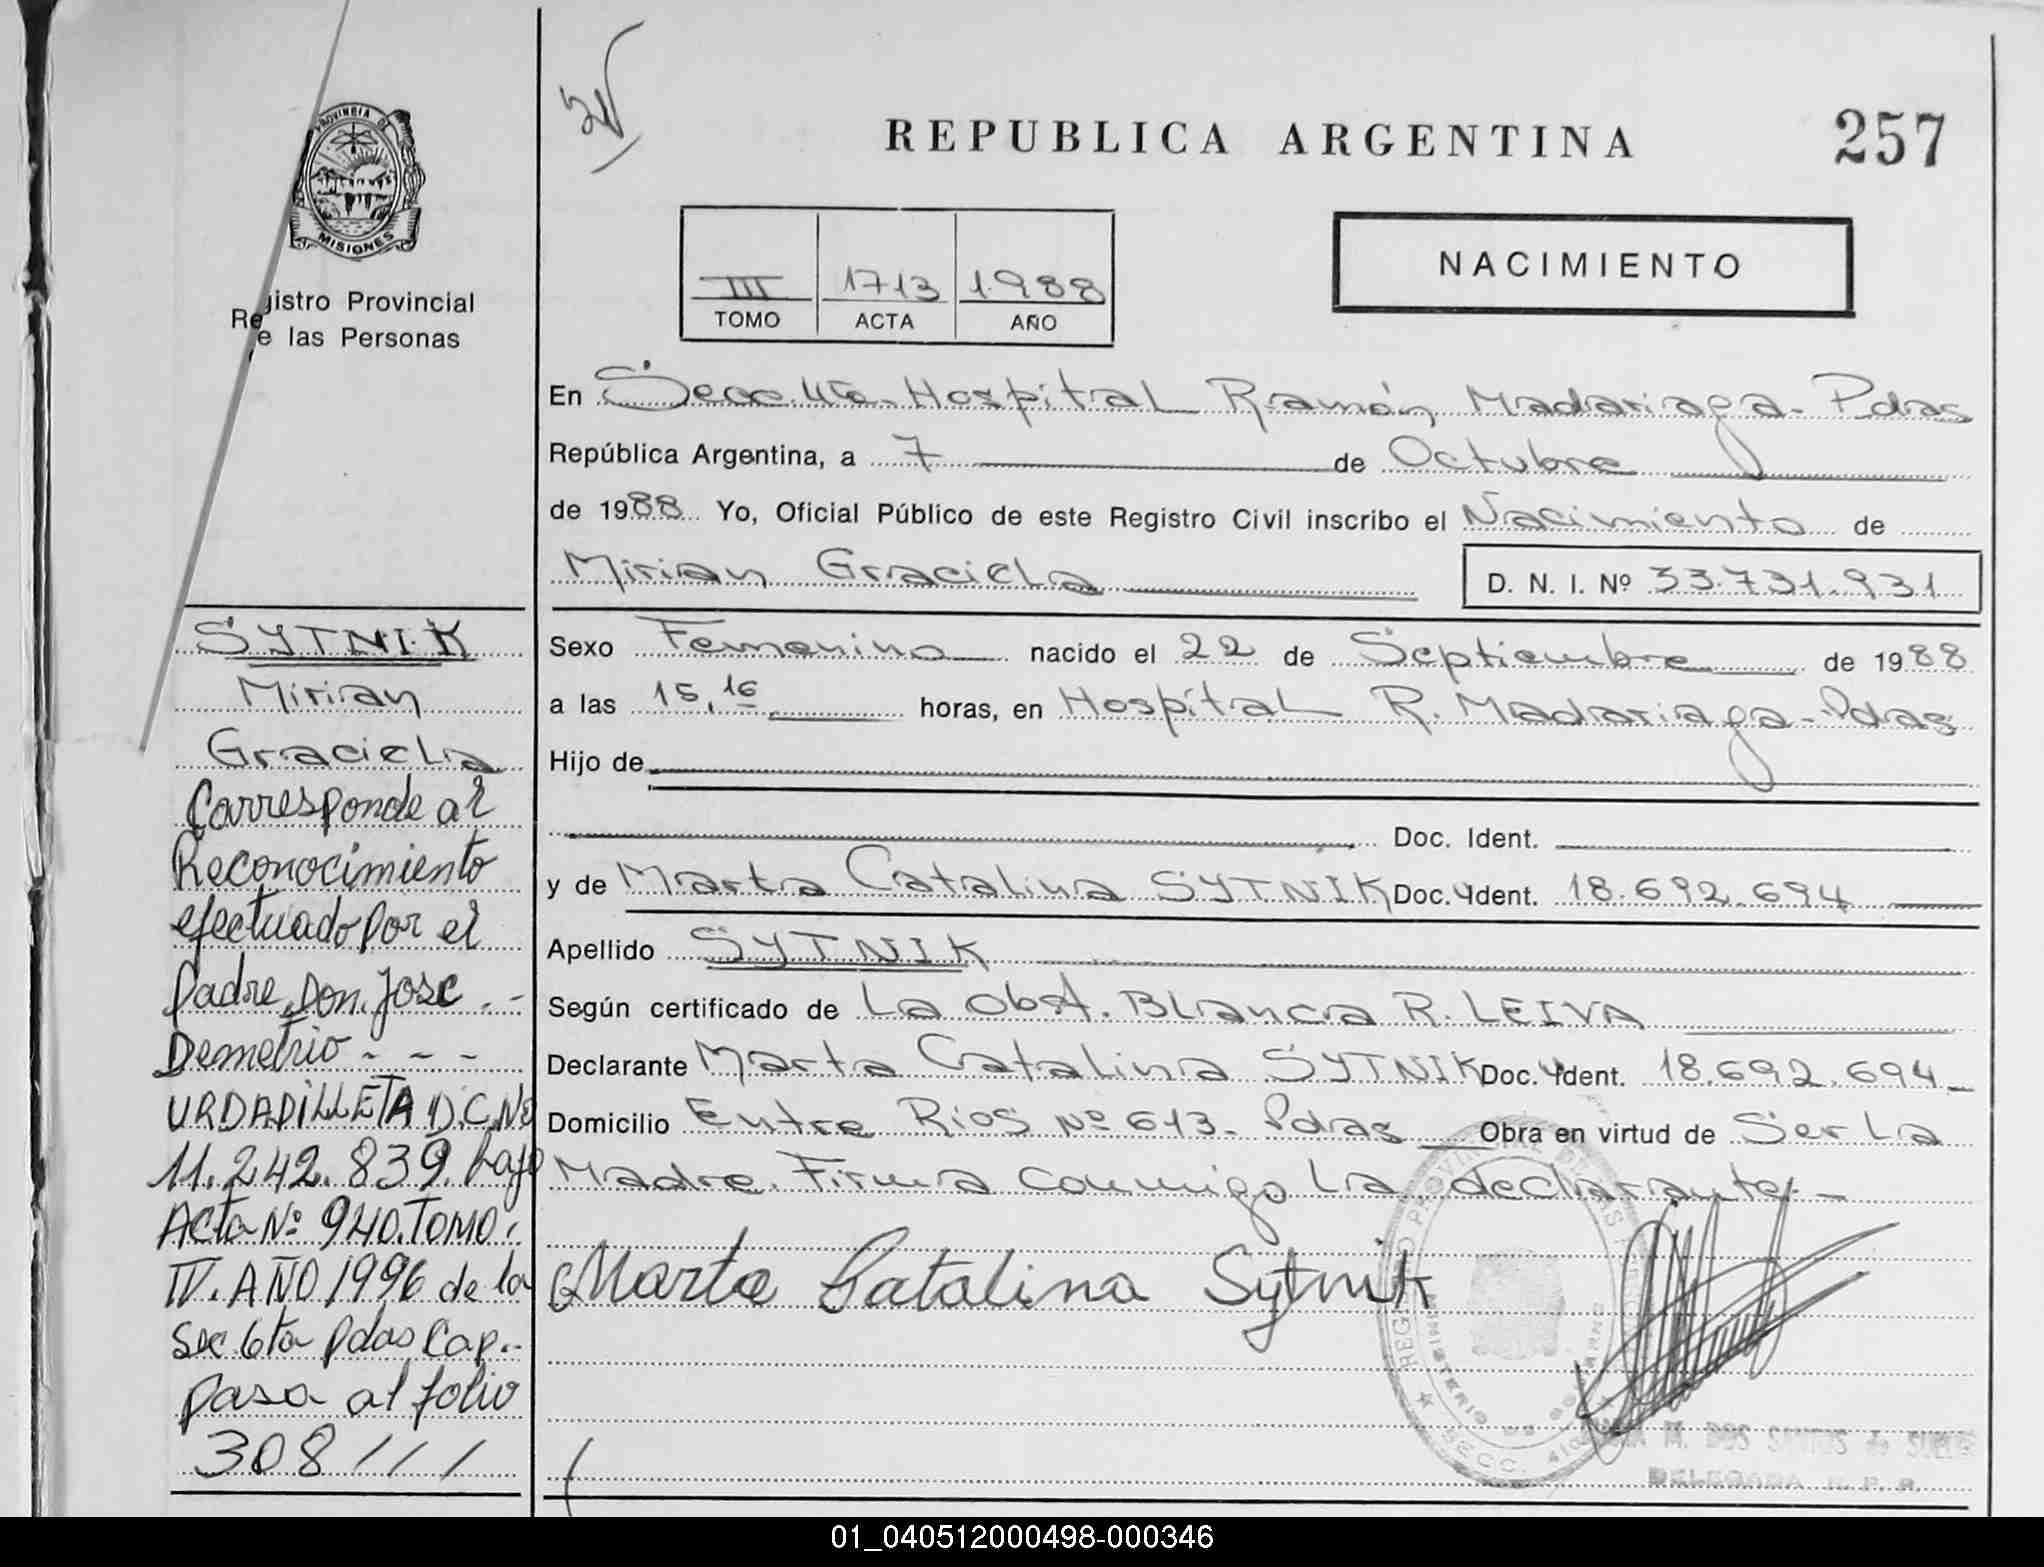 PROVINCIA DE
MISIONES
Registro Provincial
e las Personas
REPUBLICA ARGENTINA
257
III 1713 1988
TOMO ACTA AÑO
NACIMIENTO
En Secc. 4ta. Hospital Ramón Madariaga - Pdas
República Argentina, a 7 de Octubre
de 1988 Yo, Oficial Público de este Registro Civil inscribo el Nacimiento de
Mirian Graciela
D. N. I. Nº 33.731.931
Sexo Femenino nacido el 22 de Septiembre de 1988
a las 15,16 horas, en Hospital R. Madariaga - Pdas
Hijo de
Doc. Ident.
y de Marta Catalina SYTNIK Doc. Ydent. 18.692.694
Apellido SYTNIK
Según certificado de La Obst. Blanca R. LEIVA
Declarante Marta Catalina SYTNIK Doc. Ydent. 18.692.694
Domicilio Entre Rios Nº 613 - Pdas Obra en virtud de Ser La
Madre. Firma conmigo la declarante -
Marta Catalina Sytnik
SYTNIK
Mirian
Graciela
Corresponde al
Reconocimiento
efectuado por el
Padre Don. Jose . -
Demetrio - - -
URDAPILLETA D.C.Nº
11.242.839. bajo
Acta Nº 940. Tomo.
IV. AÑO 1996 de la
Sec 6ta Pdas Cap.-
Pasa al folio
308 / / /
REGISTRO PROVINCIAL DE LAS
MINISTERIO DE GOBIERNO
SECC. 4ta
M. DOS SANTOS de
DELEGADA R. P. P.
01_040512000498-000346